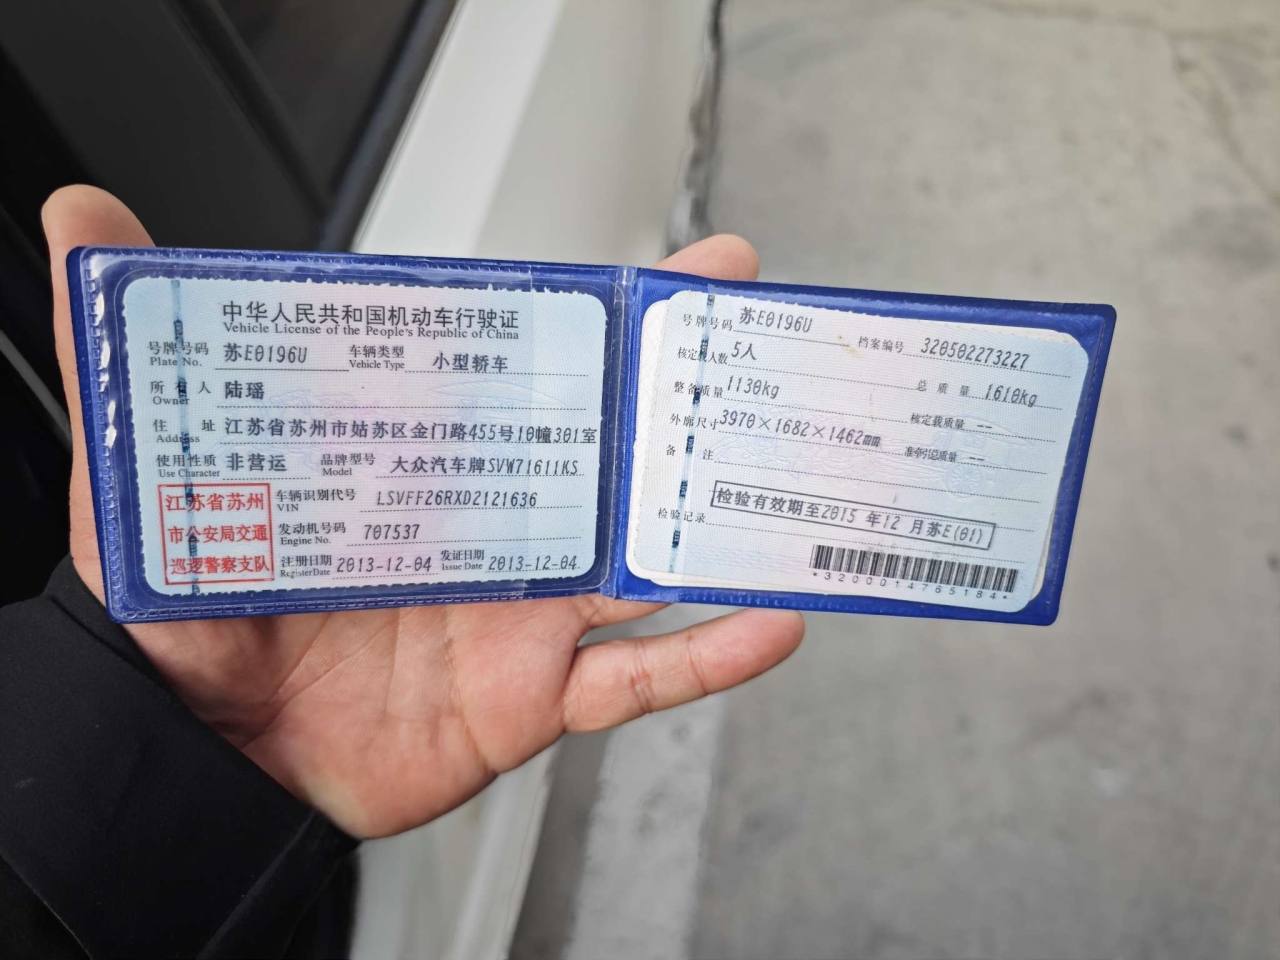 中华人民共和国机动车行驶证
Vehicle License of the People's Republic of China
号牌号码 苏E0196U 车辆类型 小型轿车
Plate No. Vehicle Type
所有人 陆瑶
Owner
住址 江苏省苏州市姑苏区金门路455号10幢301室
Address
使用性质 非营运 品牌型号 大众汽车牌SVW71611KS
Use Character Model
江苏省苏州
市公安局交通
巡逻警察支队
车辆识别代号 LSVFF26RXD2121636
VIN
发动机号码 707537
Engine No.
注册日期 2013-12-04 发证日期 2013-12-04
Register Date Issue Date
号牌号码 苏E0196U 档案编号 320502273227
核定载人数 5人 总质量 1610kg
整备质量 1130kg 核定载质量 --
外廓尺寸 3970×1682×1462mm 准牵引总质量 --
备注
检验有效期至2015年12月苏E(01)
检验记录
*3200014765184*